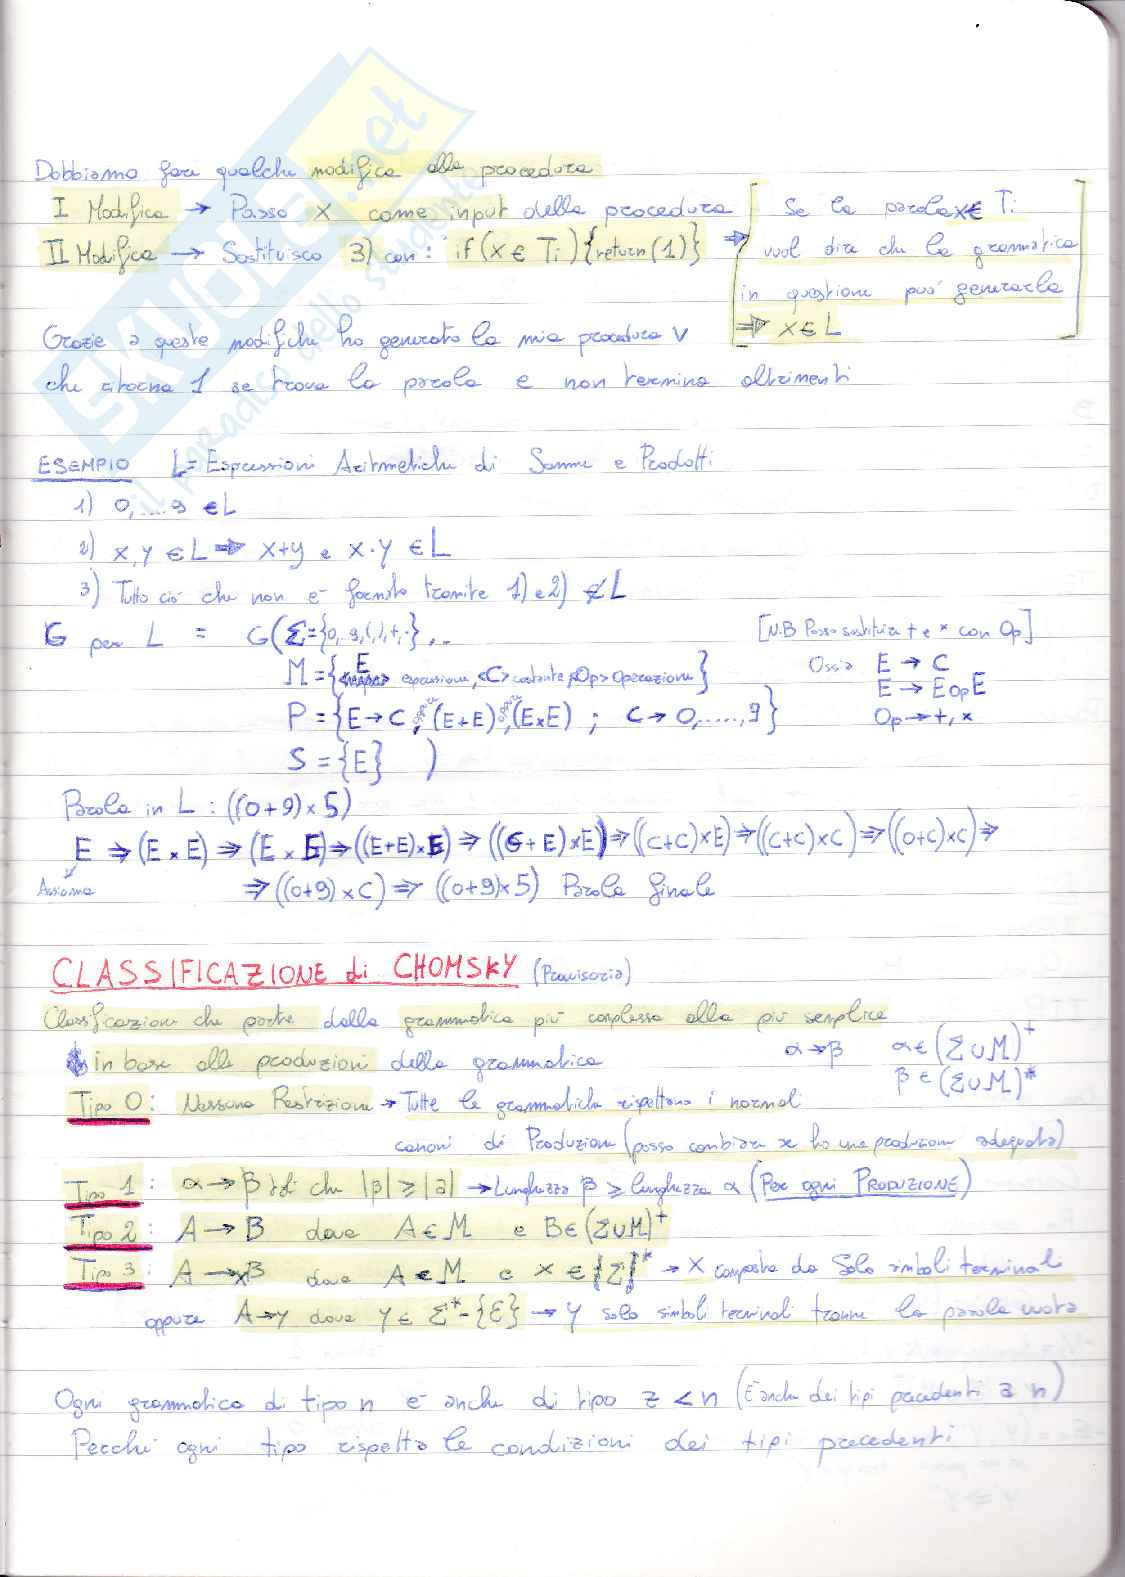 SKUOLA.net
il paradiso dello studente
Dobbiamo fare qualche modifica alla procedura
I Modifica → Passo x come input della procedura
II Modifica → Sostituisco 3) con: if (x ∈ Ti) {return(1)} ⇒
[Se la parola x ∈ Ti
vuol dire che la grammatica
in questione può generarla
⇒ x ∈ L]
Grazie a queste modifiche ho generato la mia procedura V
che ritorna 1 se trova la parola e non termina altrimenti
ESEMPIO L = Espressioni Aritmetiche di Somme e Prodotti
1) 0,....9 ∈ L
2) x, y ∈ L ⇒ x+y e x·y ∈ L
3) Tutto ciò che non è fornito tramite 1) e 2) ∉ L
G per L = G(Σ={0,..9,(,),+,·},..
[N.B Posso sostituire + e * con Op]
M = {E espressione, <C> costante, <Op> Operazione}
Ossia E → C
E → E op E
P = {E → C, (E+E), (E×E) ; C → 0,.....,9}
Op → +, ×
S = {E} )
Parola in L : ((0+9)×5)
E ⇒ (E × E) ⇒ (E × E) ⇒ ((E+E)×E) ⇒ ((C+E)×E) ⇒ ((C+C)×E) ⇒ ((C+C)×C) ⇒ ((0+C)×C) ⇒
Assioma
⇒ ((0+9)×C) ⇒ ((0+9)×5) Parola finale
CLASSIFICAZIONE di CHOMSKY (Provvisoria)
Classificazione che parte dalla grammatica più complessa alla più semplice
in base alle produzioni della grammatica
α → β α ∈ (Σ∪M)⁺
β ∈ (Σ∪M)*
Tipo 0: Nessuna Restrizione → Tutte le grammatiche rispettano i normali
canoni di Produzione (posso cambiare se ho una produzione adeguata)
Tipo 1: α → β t.li che |β| ≥ |α| → Lunghezza β ≥ lunghezza α (Per ogni PRODUZIONE)
Tipo 2: A → B dove A ∈ M e B ∈ (Σ∪M)⁺
Tipo 3: A → xB dove A ∈ M e x ∈ {Σ}* → x composta da solo simboli terminali
oppure A → y dove y ∈ Σ* - {ε} → y solo simboli terminali tranne la parola vuota
Ogni grammatica di tipo n è anche di tipo z < n (È anche dei tipi precedenti a n)
Perchè ogni tipo rispetta le condizioni dei tipi precedenti